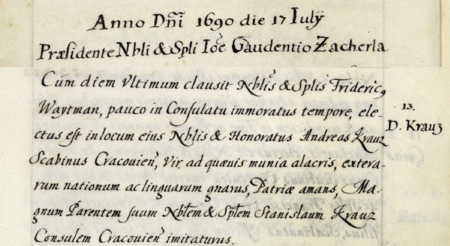 Anno Dñi 1690 die 17 Iulÿ
Præsidente Nbli & Spli Ioẽ Gaudentio Zacherla
Cum diem Vltimum clausit Nblis & Splis Frideric9
Waytman, pauco in Consulatu immoratus tempore, ele-
ctus est in locum eius Nblis & Honoratus Andreas Krauz
Scabinus Cracovien, Vir ad quævis munia alacris, extera-
rum nationum ac linguarum gnarus, Patriæ amans, Ma-
gnum Parentem suum Nblem & Splem Stanislaum Krauz
Consulem Cracovien imitaturus.
13.
D. Krauz